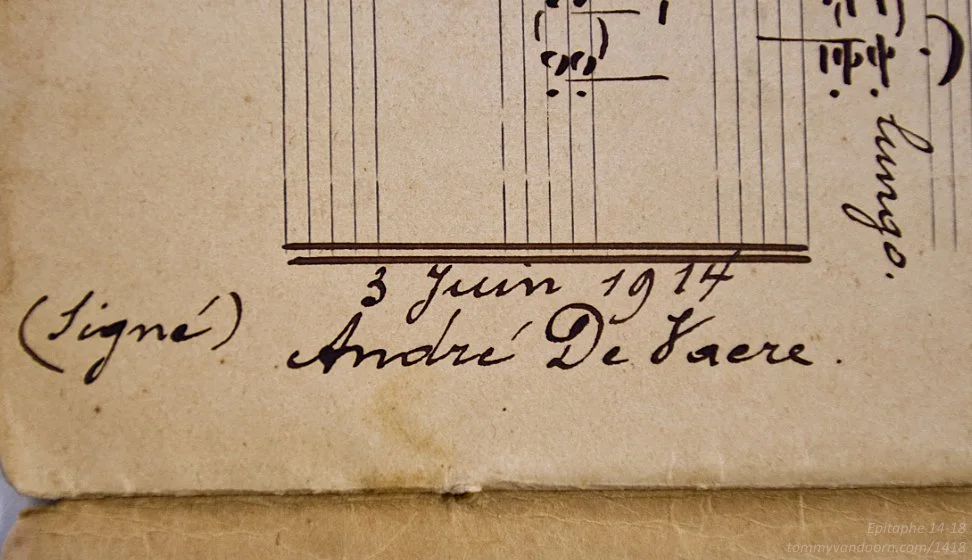 lungo.
3 Juin 1914
(Signé)
André De Vaere.
Epitaphe 14-18
tommyvandoorn.com/1418